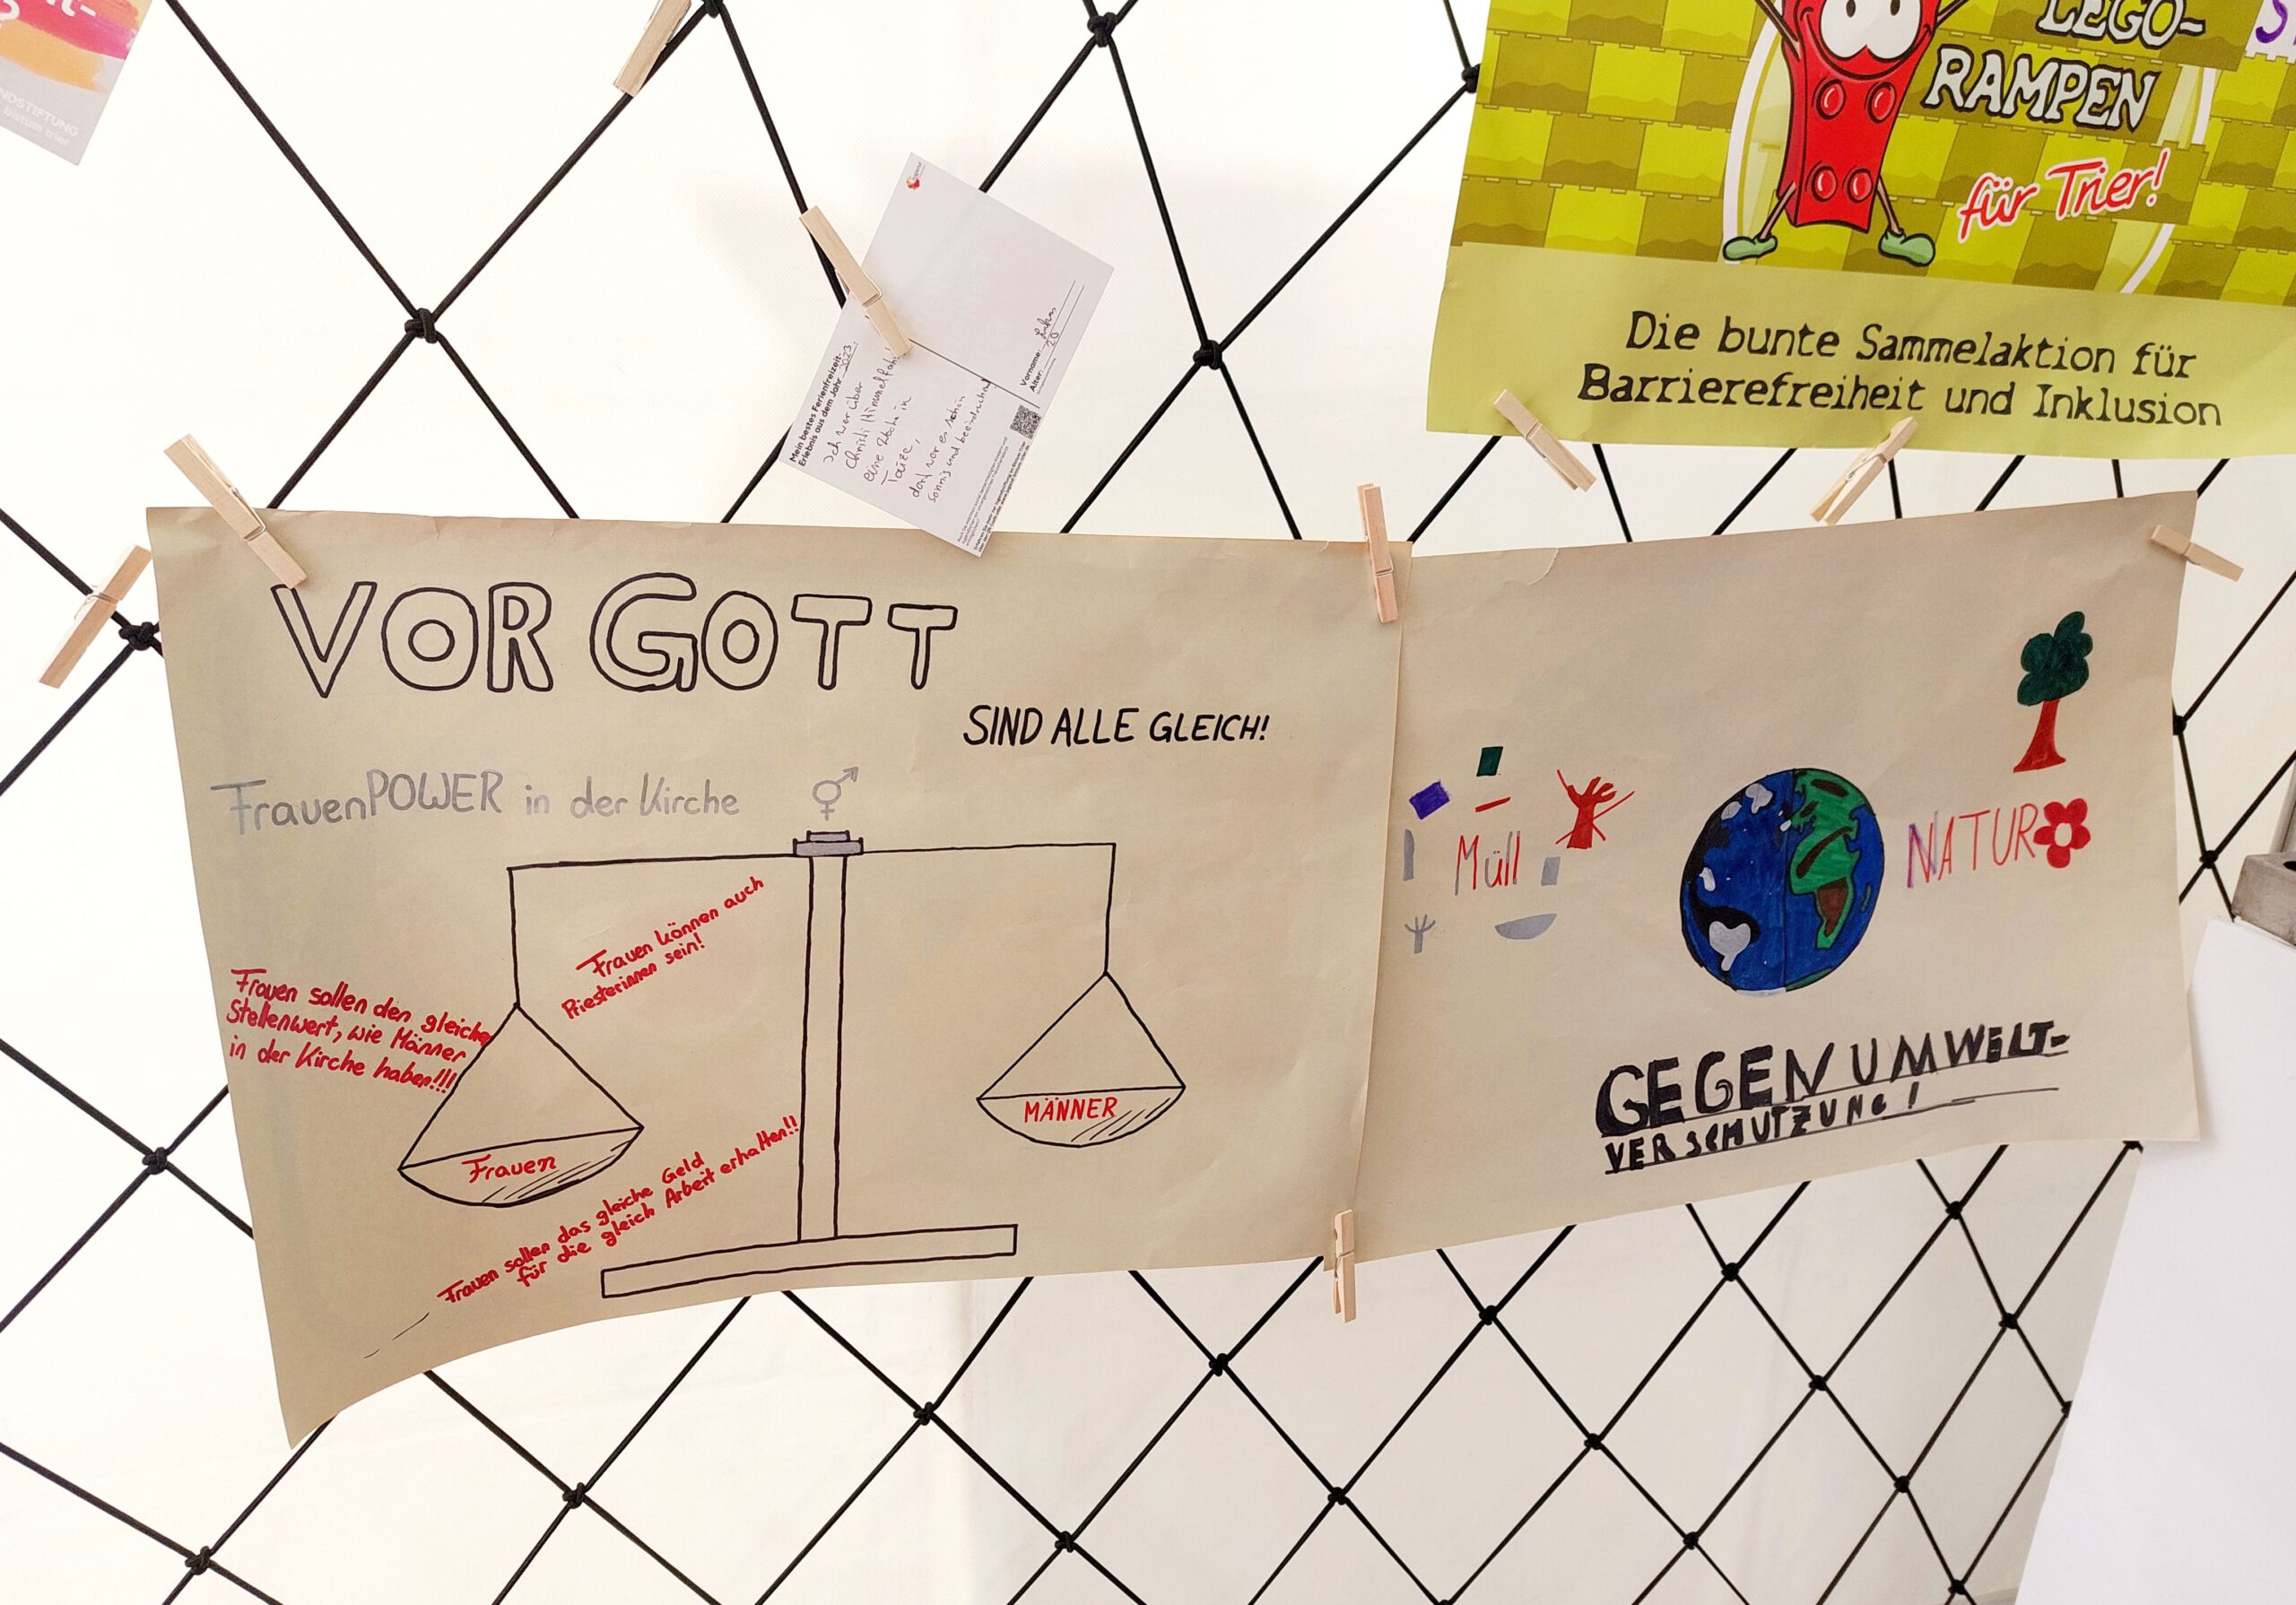 NDSTIFTUNG
bistum trier
LEGO-
RAMPEN
für Trier!
Die bunte Sammelaktion für
Barrierefreiheit und Inklusion
Mein bestes Ferienfreizeit-
Erlebnis aus dem Jahr 2023:
Ich war über
Christi Himmelfahrt
eine Woche in
Taize,
dort war es schön
sonnig und beeindruckend
Vorname: Lukas
Alter: 20
VOR GOTT
SIND ALLE GLEICH!
FrauenPOWER in der Kirche
Frauen können auch
Priesterinnen sein!
Frauen sollen den gleiche
Stellenwert, wie Männer
in der Kirche haben!!!
Frauen
MÄNNER
Frauen sollen das gleiche Geld
für die gleich Arbeit erhalten!!
Müll
NATUR
GEGEN UMWELT-
VERSCHUTZUNG!